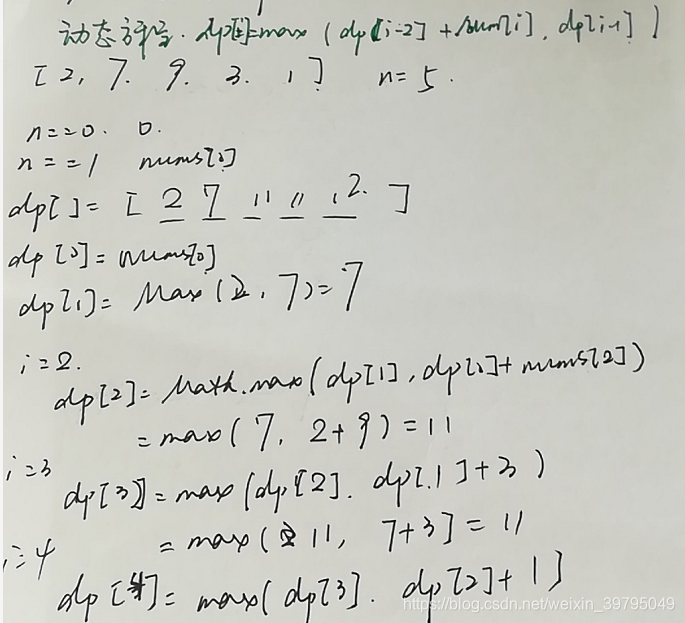 动态方程. dp[i]=max ( dp[i-2] + num[i], dp[i-1] )
[ 2, 7. 9. 3. 1 ] n= 5.
n==0. 0.
n = =1 nums[0]
dp[ ]= [ 2 7 11 11 12. ]
dp [0]= nums[0]
dp[1]= Max (2, 7)= 7
i=2.
dp[2]= Math.max( dp[1], dp[0]+nums[2])
=max( 7, 2+9) = 11
i=3
dp[3]=max(dp[2]. dp[1]+3 )
= max ( 11, 7+3] = 11
i=4
dp [4]= max( dp[3]. dp[2]+ 1]
https://blog.csdn.net/weixin_39795049